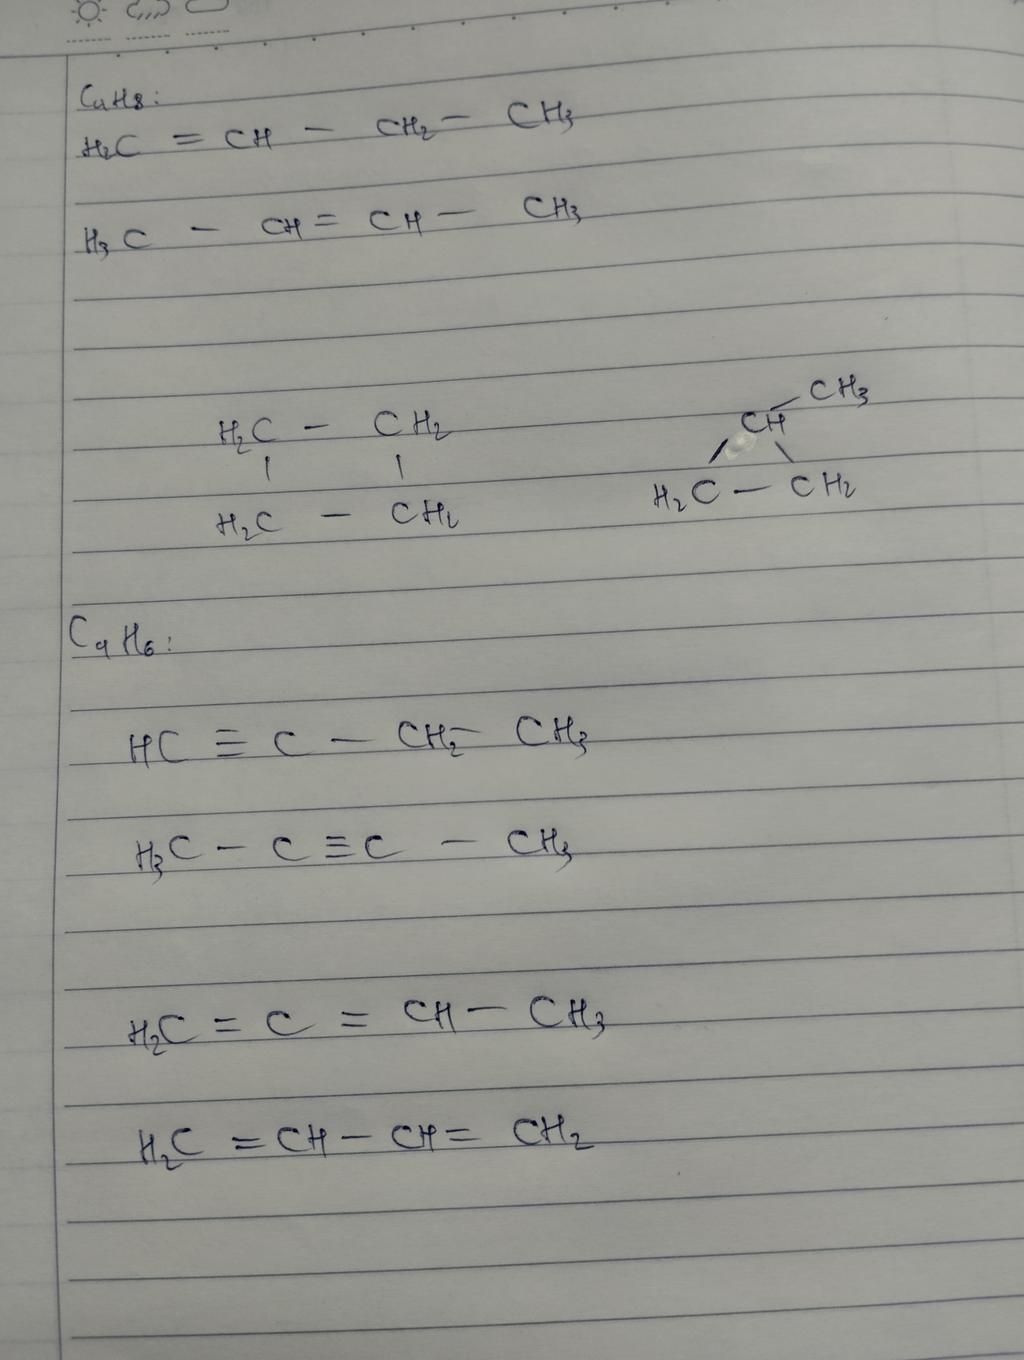 C4H8:
H2C = CH - CH2 - CH3
H3C - CH = CH - CH3
CH3
H2C - CH2 CH
H2C - CH2 H2C - CH2
C4H6:
HC ≡ C - CH2 - CH3
H3C - C ≡ C - CH3
H2C = C = CH - CH3
H2C = CH - CH = CH2